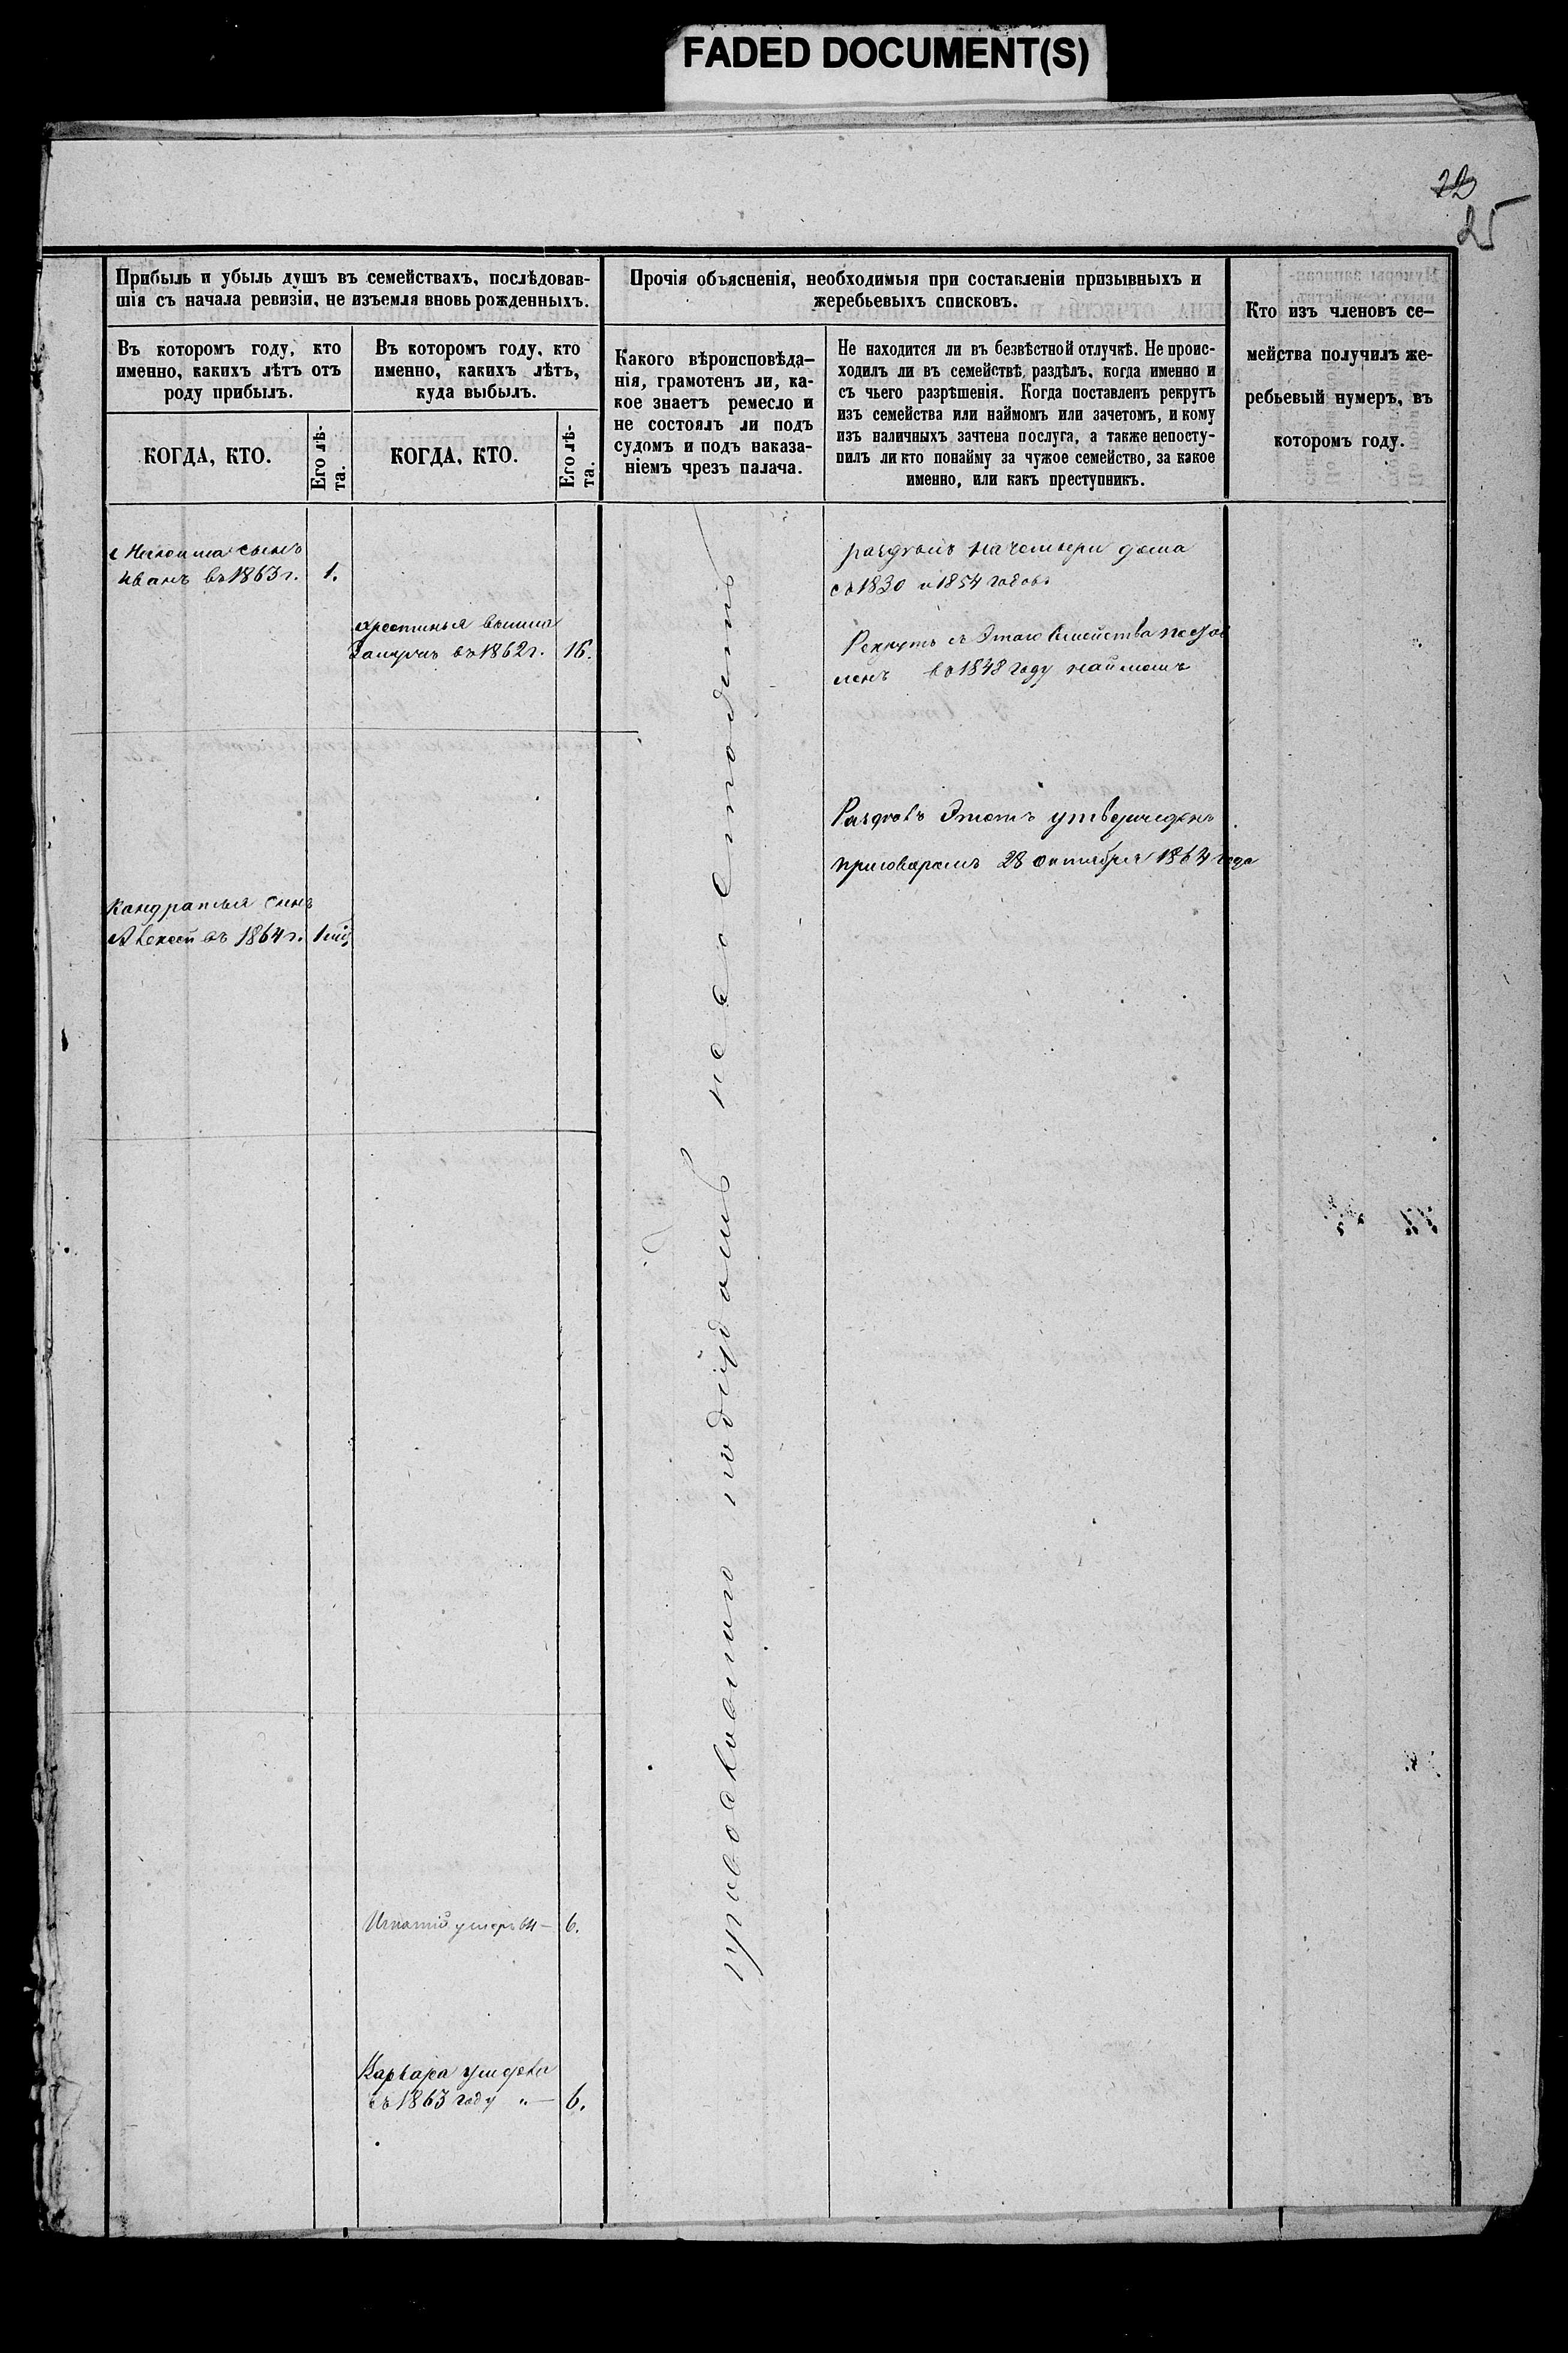 FADED DOCUMENT(S)
25
Прибыль и убыль душъ въ семействахъ, послѣдовав-
шія съ начала ревизіи, не изъемля вновь рожденныхъ.
Въ которомъ году, кто
именно, какихъ лѣтъ отъ
роду прибылъ.
КОГДА, КТО.
Его лѣ-
та.
Въ которомъ году, кто
именно, какихъ лѣтъ,
куда выбылъ.
КОГДА, КТО.
Его лѣ-
та.
Прочія объясненія, необходимыя при составленіи призывныхъ и
жеребьевыхъ списковъ.
Какого вѣроисповѣда-
нія, грамотенъ ли, ка-
кое знаетъ ремесло и
не состоялъ ли подъ
судомъ и подъ наказа-
ніемъ чрезъ палача.
Не находится ли въ безвѣстной отлучкѣ. Не проис-
ходилъ ли въ семействѣ раздѣлъ, когда именно и
съ чьего разрѣшенія. Когда поставленъ рекрутъ
изъ семейства или наймомъ или зачетомъ, и кому
изъ наличныхъ зачтена послуга, а также непосту-
пилъ ли кто понайму за чужое семейство, за какое
именно, или какъ преступникъ.
Кто изъ членовъ се-
мейства получилъ же-
ребьевый нумеръ, въ
которомъ году.
сынъ
Иванъ въ 1863 г. 1.
вышла
замужъ въ 1862 г. 16.
на четыри дома
съ 1830 и 1854 годовъ
Рекрутъ съ Этаго Семейства
ленъ въ 1848 году наймомъ
Раздѣлъ Этотъ утвержденъ
приговоромъ 28 октября 1864 года
Кандратья сынъ
Алексей въ 1864 г.
православнаго подсудомъ не состоитъ
Игнатій умеръ 64 — 6.
Варвара умерла
въ 1863 году „— 6.